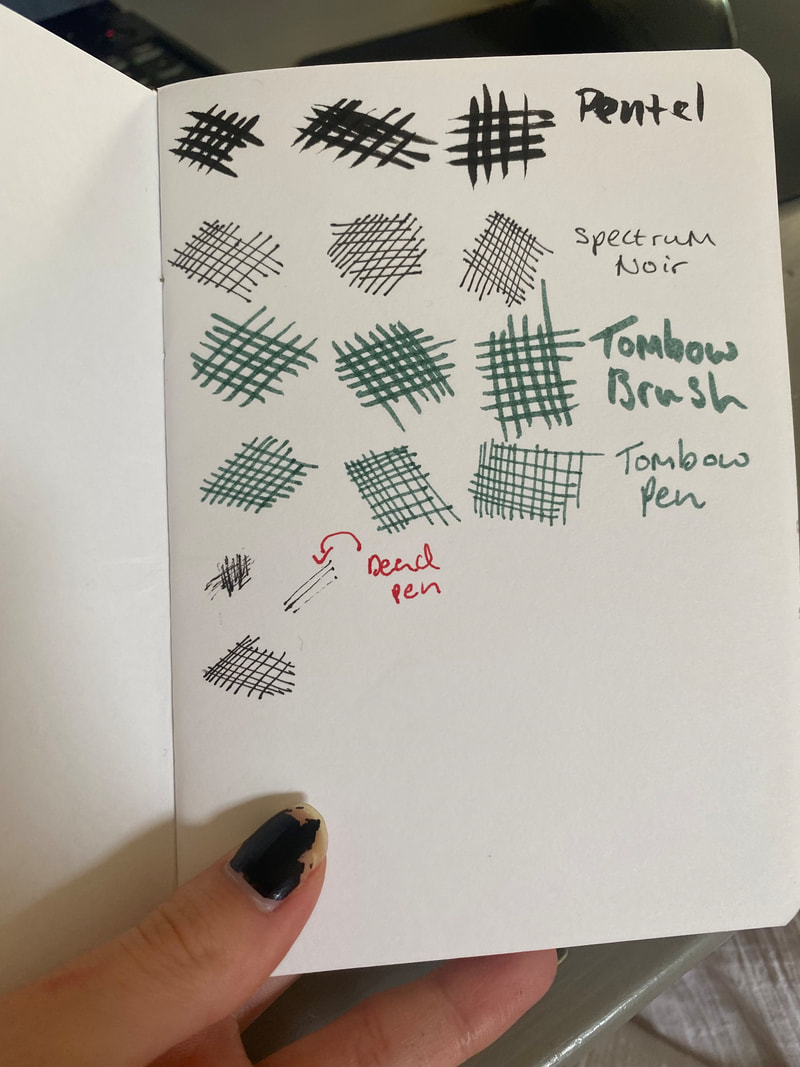 Pentel
Spectrum
Noir
Tombow
Brush
Tombow
Pen
Dead
Pen